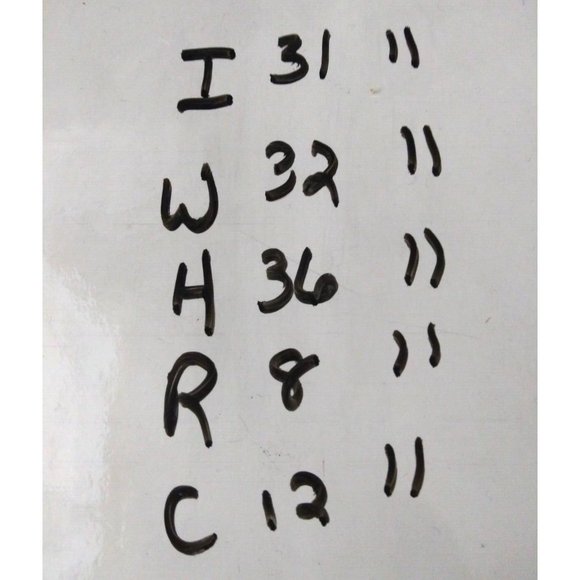 I 31 "
W 32 "
H 36 "
R 8 "
C 12 "